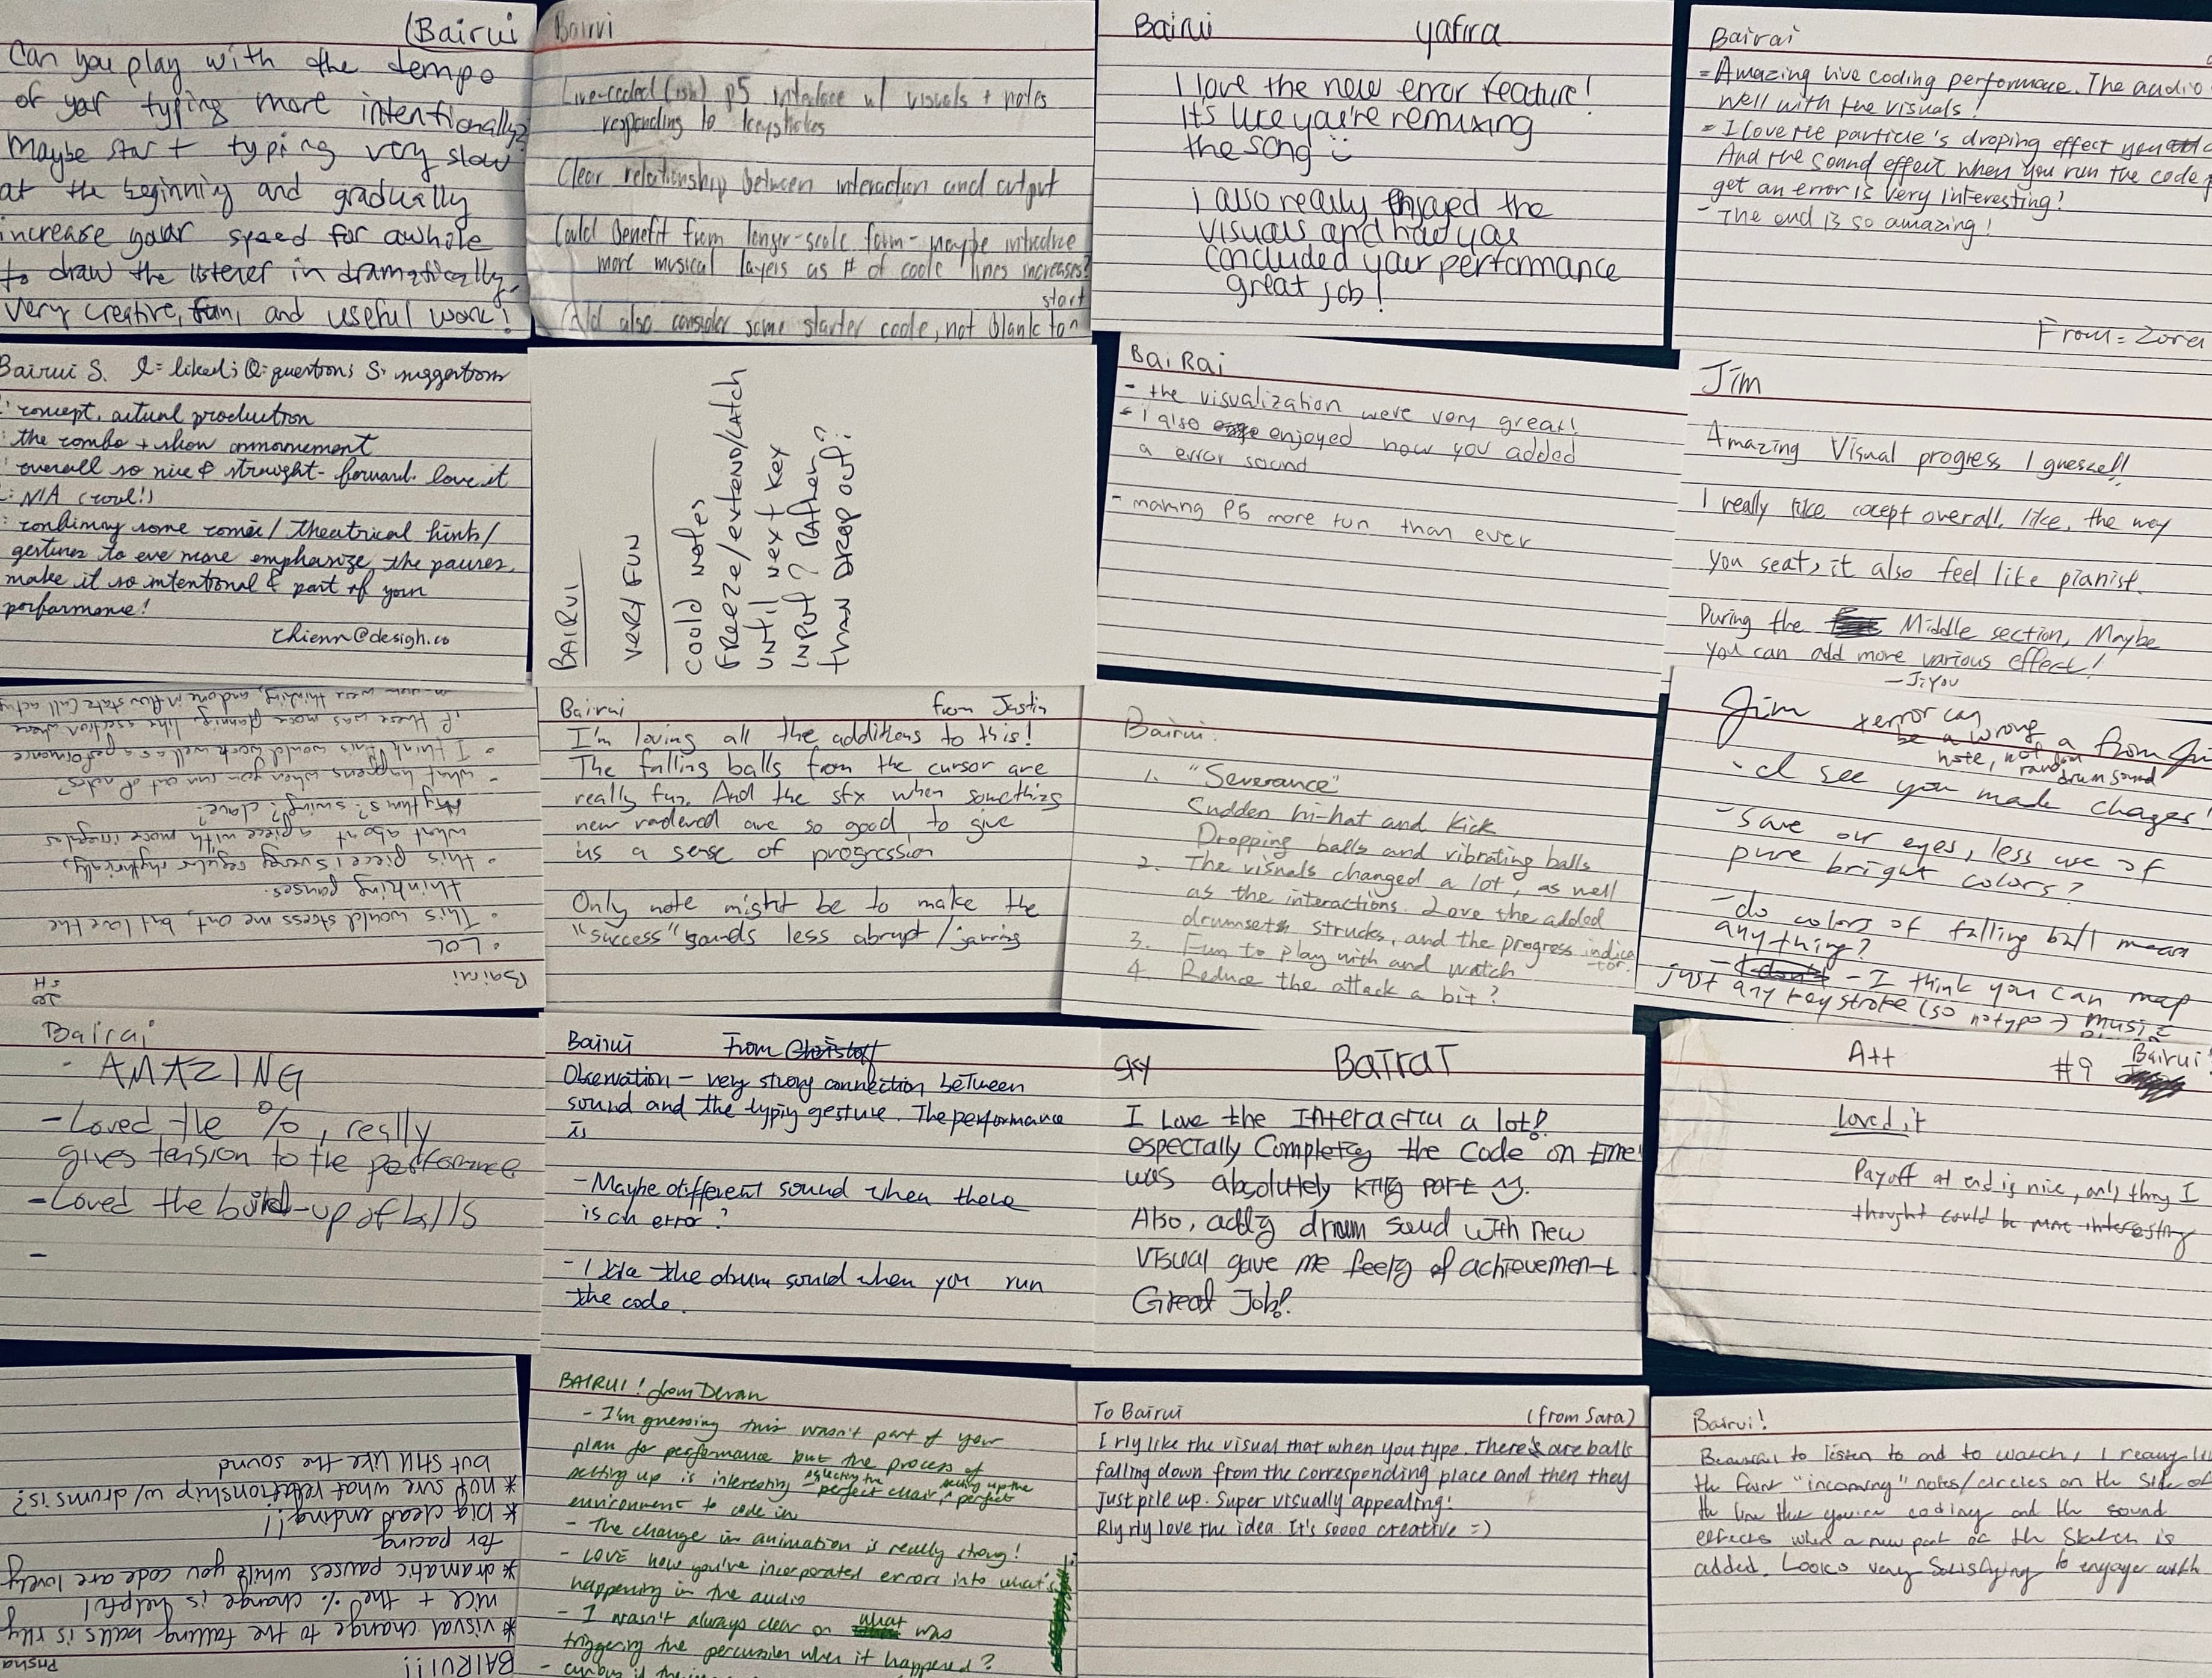 (Bairui
Can you play with the tempo
of your typing more intentionally?
Maybe start typing very slow
at the beginning and gradually
increase your speed for awhile
to draw the listener in dramatically.
Very creative, fun, and useful work!
Bairui
Live-coded (ish) p5 interface w/ visuals + notes
responding to keystrokes
Clear relationship between interaction and output
Could benefit from longer-scale form - maybe introduce
more musical layers as # of code lines increases?
start
Could also consider some starter code, not blank to ^
Bairui yafira
I love the new error feature!
It's like you're remixing
the song
i also really enjoyed the
visuals and how you
concluded your performance
great job!
Bairai
- Amazing live coding performace. The audio
well with the visuals!
- I love the particle's droping effect you
And the sound effect when you run the code
get an error is very interesting!
- The end is so amazing!
From = Zora
Bairui S. L= liked; Q= questions; S= suggestions
: concept, actual production
: the combo + show announcement
: overall so nice & straight-forward. love it
: N/A (cool!)
: combining some comic/ theatrical hints/
gestures to eve more emphasize the pauses,
make it so intentional & part of your
performance!
BAIRUI
VERY FUN
COULD NOTES
FREEZE/EXTEND/LATCH
UNTIL NEXT KEY
INPUT? RATHER
THAN DROP OUT?
BaiRai
- the visualization were very great!
- i also enjoyed how you added
a error sound
- making P5 more fun than ever
Jim
Amazing Visual progress I guess!!
I really like cocept overall, like, the way
you seat, it also feel like pianist.
During the Middle section, Maybe
you can add more various effect!
- JiYou
Bairui
• LOL
• This would stress me out, but love the
thinking pauses.
• this piece is very regular rhythmically,
what about a piece with more irregular
rhythms? swing? clave?
- what happens when you run out of notes?
• I think this would work well as a performance
if there was more planning, like a section where
Bairui from Justin
I'm loving all the additions to this!
The falling balls from the cursor are
really fun. And the sfx when something
new rendered are so good, to give
us a sense of progression
Only note might be to make the
"success" sounds less abrupt / jarring
Bairui:
1. "Severance"
Sudden hi-hat and kick
Dropping balls and vibrating balls
2. The visuals changed a lot, as well
as the interactions. Love the added
drumsets strucks, and the progress indicator.
3. Fun to play with and watch
4. Reduce the attack a bit?
Jim
error can
be a wrong
note, not a
random
drum sound
from
- I see you made changes!
- save our eyes, less use of
pure bright colors?
- do colors of falling ball mean
anything?
- I think you can map
just any keystroke (so no typo)
Bairui
- AMAZING
- Loved the %, really
gives tension to the performance
- Loved the build-up of balls
-
Bairui From Christoff
Observation - very strong connection between
sound and the typig gesture. The performance
is
- Maybe different sound when there
is an error?
- I like the drum sound when you run
the code.
BaIRaI
I Love the Interactiu a lot!
especially Completig the Code on time!
was absolutely kttg part
Also, addig drum soud with new
visual gave me feelig of achievement
Great Job!
A++ #9 Bairui!
Loved it
Payoff at end is nice, only thing I
thought could be more interesting
BAIRUI!!! Prisha
* visual change to the falling balls is rlly
nice + the % change is helpful
* dramatic pauses while you code are lovely
for pacing
* big clear ending!!
* not sure what relationship w/ drums is?
but still like the sound
BAIRUI! from Devan
- I'm guessing this wasn't part of your
plan for performance but the process of
setting up is interesting - selecting the perfect chair, setting up the perfect
environment to code in
- The change in animation is really strong!
- LOVE how you've incorporated errors into what's
happening in the audio
- I wasn't always clear on what was
triggering the percussion when it happened?
To Bairui (from Sara)
I rly like the visual that when you type. there's are balls
falling down from the corresponding place and then they
just pile up. Super visually appealing!
Rly rly love the idea. It's soooo creative =)
Bairui!
Beautiful to listen to and to watch, I really
the faint "incoming" notes/circles on the side of
the line that you're coding and the sound
effects when a new part of the sketch is
added. Looks very satisfying to engage with